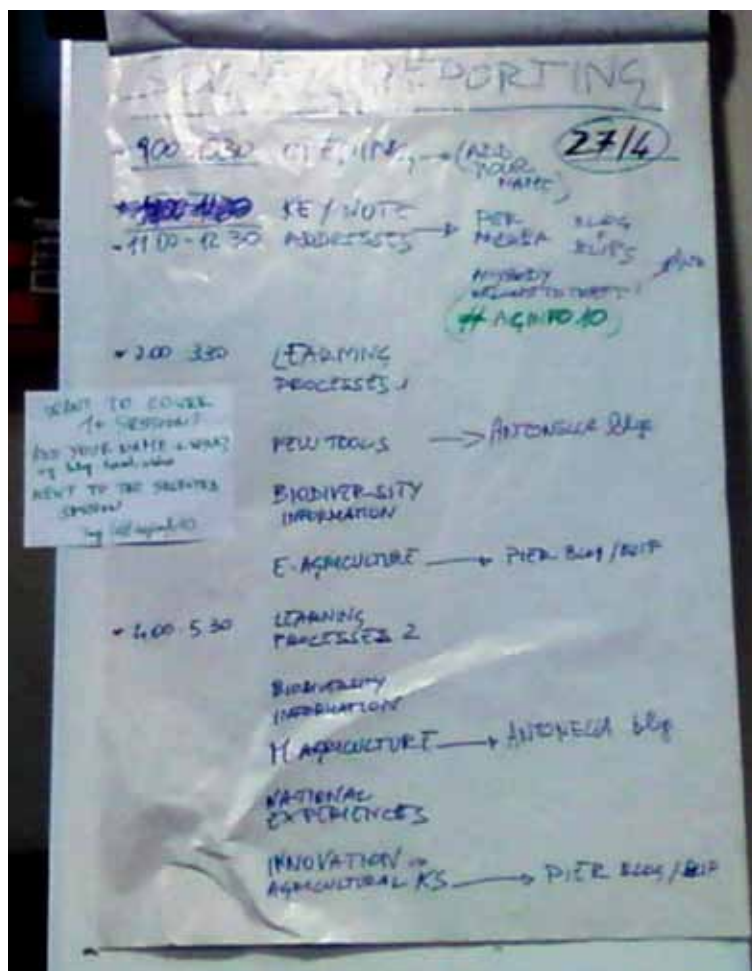 REPORTING
27/4
9.00 OPENING → (ADD
YOUR
NAME)
KEYNOTE
11.00 - 12.30 ADDRESSES → PER BLOG +
MEDIA BLIPS
ANYBODY
# AGINFO10
2.00 3.30 LEARNING
PROCESSES 1
NEW TOOLS → ANTONELLA blog
BIODIVERSITY
INFORMATION
E-AGRICULTURE → PIER BLOG/BLIP
4.00 5.30 LEARNING
PROCESSES 2
BIODIVERSITY
INFORMATION
M AGRICULTURE → ANTONELLA blog
NATIONAL
EXPERIENCES
INNOVATION in
AGRICULTURAL KS → PIER BLOG/BLIP
WANT TO COVER
1+ SESSION?
ADD YOUR NAME & WHAT
eg blog
NEXT TO THE SELECTED
SESSION